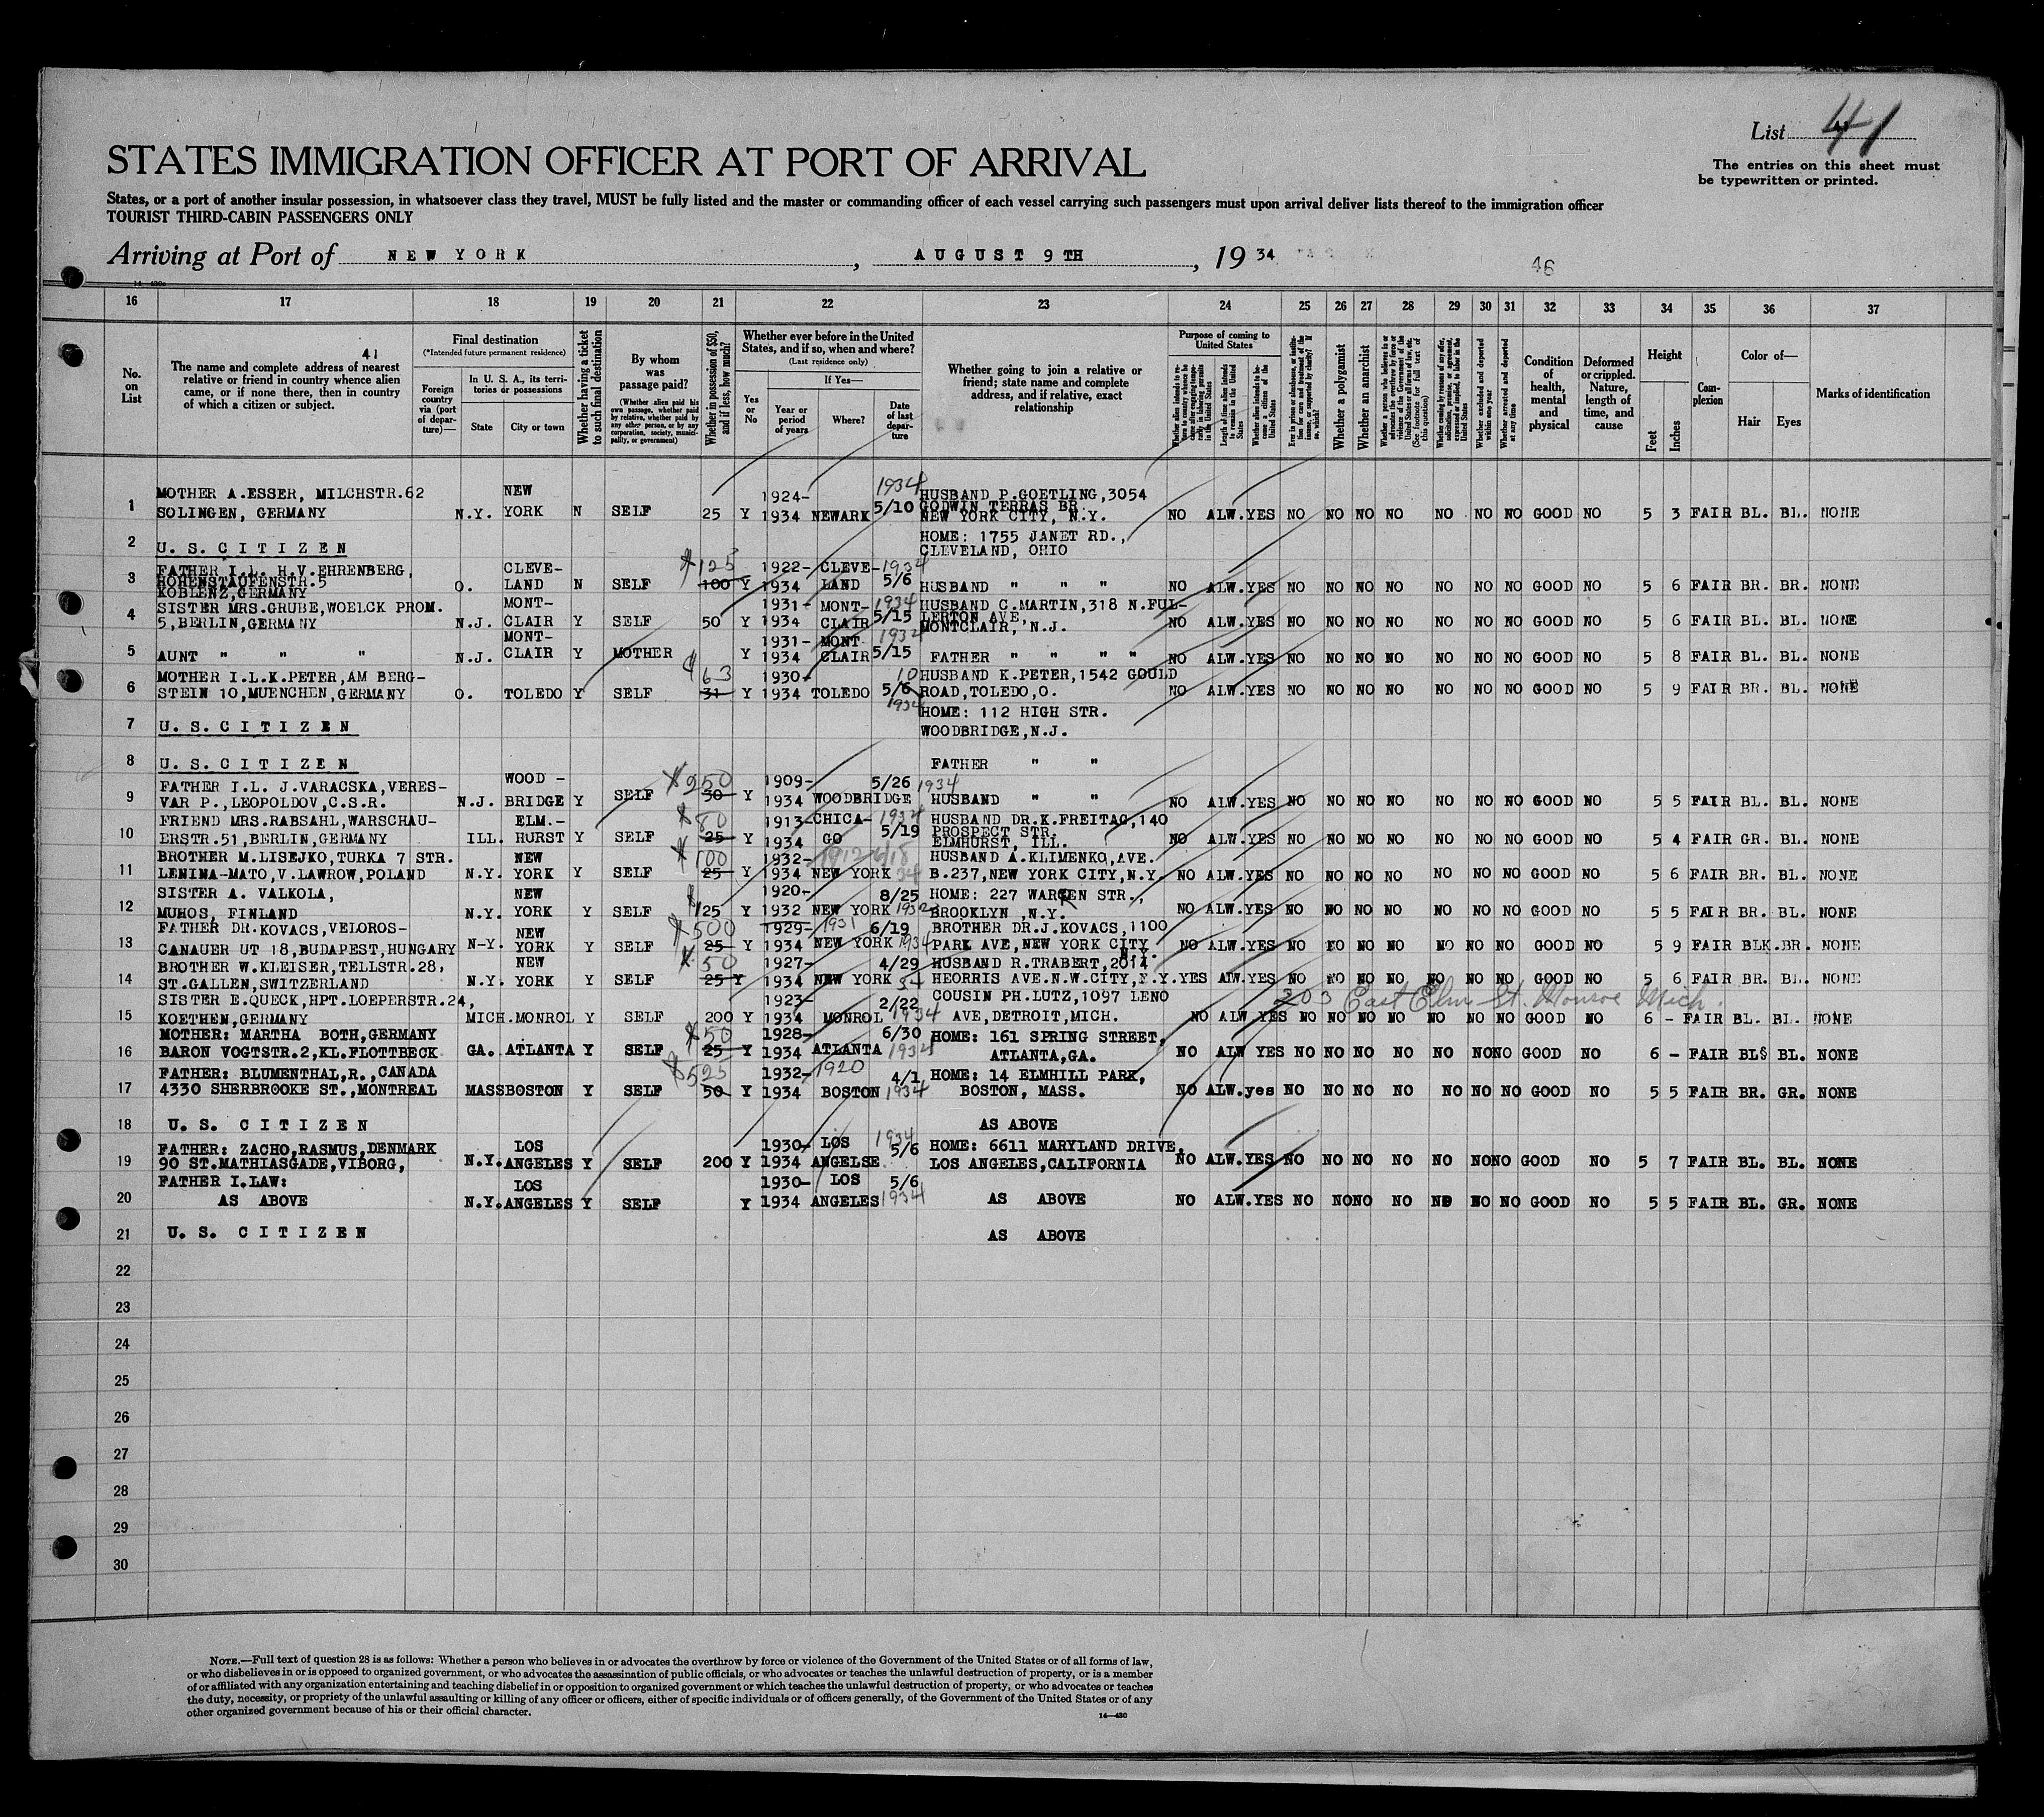 List 41
STATES IMMIGRATION OFFICER AT PORT OF ARRIVAL
The entries on this sheet must
be typewritten or printed.
States, or a port of another insular possession, in whatsoever class they travel, MUST be fully listed and the master or commanding officer of each vessel carrying such passengers must upon arrival deliver lists thereof to the immigration officer
TOURIST THIRD-CABIN PASSENGERS ONLY
Arriving at Port of NEW YORK, AUGUST 9TH, 1934
46
16 17 18 19 20 21 22 23 24 25 26 27 28 29 30 31 32 33 34 35 36 37
No. on List
41
The name and complete address of nearest relative or friend in country whence alien came, or if none there, then in country of which a citizen or subject.
Final destination
(*Intended future permanent residence)
Foreign country via (port of departure)—
In U. S. A., its territories or possessions
State
City or town
Whether having a ticket to such final destination
By whom was passage paid?
(Whether alien paid his own passage, whether paid by relative, whether paid by any other person, or by any corporation, society, municipality, or government)
Whether in possession of $50, and if less, how much?
Whether ever before in the United States, and if so, when and where?
(Last residence only)
Yes or No
If Yes—
Year or period of years
Where?
Date of last departure
Whether going to join a relative or friend; state name and complete address, and if relative, exact relationship
Purpose of coming to United States
Length of time alien intends to remain in the United States
Whether alien intends to become a citizen of the United States
Whether a polygamist
Whether an anarchist
Whether excluded and deported within one year
Whether arrested and deported at any time
Condition of health, mental and physical
Deformed or crippled. Nature, length of time, and cause
Height
Feet
Inches
Complexion
Color of—
Hair
Eyes
Marks of identification
1 MOTHER A.ESSER, MILCHSTR.62 SOLINGEN, GERMANY N.Y. NEW YORK N SELF 25 Y 1924-1934 NEWARK 5/10 1934 HUSBAND P.GOETLING,3054 GODWIN TERRAS BR. NEW YORK CITY, N.Y. NO ALW. YES NO NO NO NO NO NO NO GOOD NO 5 3 FAIR BL. BL. NONE
2 U.S.CITIZEN HOME: 1755 JANET RD., CLEVELAND, OHIO
3 FATHER I.L. H.V.EHRENBERG, HOHENSTAUFENSTR.5 KOBLENZ,GERMANY O. CLEVE-LAND N SELF 100 $125 Y 1922-1934 CLEVE-LAND 5/6 1934 HUSBAND " " " NO ALW. YES NO NO NO NO NO NO NO GOOD NO 5 6 FAIR BR. BR. NONE
4 SISTER MRS.GRUBE,WOELCK PROM. 5,BERLIN,GERMANY N.J. MONT-CLAIR Y SELF 50 Y 1931-1934 MONT-CLAIR 5/15 1934 HUSBAND C.MARTIN,318 N.FUL-LERTON AVE, MONTCLAIR, N.J. NO ALW. YES NO NO NO NO NO NO NO GOOD NO 5 6 FAIR BL. BL. NONE
5 AUNT " " " N.J. MONT-CLAIR Y MOTHER Y 1931-1934 MONT-CLAIR 5/15 1934 FATHER " " " " NO ALW. YES NO NO NO NO NO NO NO GOOD NO 5 8 FAIR BL. BL. NONE
6 MOTHER I.L.K.PETER,AM BERG-STEIN 10,MUENCHEN,GERMANY O. TOLEDO Y SELF 31 $63 Y 1930-1934 TOLEDO 5/6 10 1934 HUSBAND K.PETER,1542 GOULD ROAD,TOLEDO,O. NO ALW. YES NO NO NO NO NO NO NO GOOD NO 5 9 FAIR BR. BL. NONE
7 U.S.CITIZEN HOME: 112 HIGH STR. WOODBRIDGE,N.J.
8 U.S.CITIZEN FATHER " "
9 FATHER I.L. J.VARACSKA,VERES-VAR P.,LEOPOLDOV,C.S.R. N.J. WOOD-BRIDGE Y SELF 30 $250 Y 1909-1934 WOODBRIDGE 5/26 1934 HUSBAND " " NO ALW. YES NO NO NO NO NO NO NO GOOD NO 5 5 FAIR BL. BL. NONE
10 FRIEND MRS.RABSAHL,WARSCHAU-ERSTR.51,BERLIN,GERMANY ILL. ELM.-HURST Y SELF 25 $80 Y 1913-1934 CHICA-GO 5/19 1934 HUSBAND DR.K.FREITAG,140 PROSPECT STR. ELMHURST, ILL. NO ALW. YES NO NO NO NO NO NO NO GOOD NO 5 4 FAIR GR. BL. NONE
11 BROTHER M.LISEJKO,TURKA 7 STR. LENINA-MATO,V.LAWROW,POLAND N.Y. NEW YORK Y SELF 25 $100 Y 1932-1934 NEW YORK 1912 6/18 34 HUSBAND A.KLIMENKO,AVE. B.237,NEW YORK CITY,N.Y. NO ALW. YES NO NO NO NO NO NO NO GOOD NO 5 6 FAIR BR. BL. NONE
12 SISTER A. VALKOLA, MUHOS, FINLAND N.Y. NEW YORK Y SELF $125 Y 1920-1932 NEW YORK 8/25 1932 HOME: 227 WARREN STR., BROOKLYN ,N.Y. NO ALW. YES NO NO NO NO NO NO NO GOOD NO 5 5 FAIR BR. BL. NONE
13 FATHER DR.KOVACS,VELOROS-CANAUER UT 18,BUDAPEST,HUNGARY N-Y. NEW YORK Y SELF 25 $500 Y 1929-1934 1931 NEW YORK 6/19 1934 BROTHER DR.J.KOVACS,1100 PARK AVE,NEW YORK CITY N.Y. NO ALW. YES NO NO NO NO NO NO NO GOOD NO 5 9 FAIR BLK.BR. NONE
14 BROTHER W.KLEISER,TELLSTR.28, ST.GALLEN,SWITZERLAND N.Y. NEW YORK Y SELF 25 $50 Y 1927-1934 NEW YORK 4/29 34 HUSBAND R.TRABERT,2014 HEORRIS AVE.N.W.CITY,N.Y. YES ALW. YES NO NO NO NO NO NO NO GOOD NO 5 6 FAIR BR. BL. NONE
15 SISTER E.QUECK,HPT.LOEPERSTR.24, KOETHEN,GERMANY MICH. MONROL Y SELF 200 Y 1923-1934 MONROL 2/22 1934 COUSIN PH.LUTZ,1097 LENO AVE,DETROIT,MICH. 203 East Elm St. Monroe Mich. NO ALW YES NO NO NO NO NO NO NO GOOD NO 6 - FAIR BL. BL. NONE
16 MOTHER: MARTHA BOTH,GERMANY BARON VOGTSTR.2,KL.FLOTTBECK GA. ATLANTA Y SELF 25 $50 Y 1928-1934 ATLANTA 6/30 1934 HOME: 161 SPRING STREET, ATLANTA,GA. NO ALW YES NO NO NO NO NO NO NO GOOD NO 6 - FAIR BLS BL. NONE
17 FATHER: BLUMENTHAL,R.,CANADA 4330 SHERBROOKE ST.,MONTREAL MASS BOSTON Y SELF 50 $525 Y 1932-1934 1920 BOSTON 4/1 1934 HOME: 14 ELMHILL PARK, BOSTON, MASS. NO ALW. yes NO NO NO NO NO NO NO GOOD NO 5 5 FAIR BR. GR. NONE
18 U. S. CITIZEN AS ABOVE
19 FATHER: ZACHO,RASMUS,DENMARK 90 ST.MATHIASGADE,VIBORG, N.Y. LOS ANGELES Y SELF 200 Y 1930-1934 LOS ANGELSE 5/6 1934 HOME: 6611 MARYLAND DRIVE, LOS ANGELES,CALIFORNIA NO ALW. YES NO NO NO NO NO NO NO GOOD NO 5 7 FAIR BL. BL. NONE
20 FATHER I.LAW: AS ABOVE N.Y. LOS ANGELES Y SELF Y 1930-1934 LOS ANGELES 5/6 1934 AS ABOVE NO ALW. YES NO NO NO NO NO NO NO GOOD NO 5 5 FAIR BL. GR. NONE
21 U. S. CITIZEN AS ABOVE
22
23
24
25
26
27
28
29
30
NOTE.—Full text of question 28 is as follows: Whether a person who believes in or advocates the overthrow by force or violence of the Government of the United States or of all forms of law,
or who disbelieves in or is opposed to organized government, or who advocates the assassination of public officials, or who advocates or teaches the unlawful destruction of property, or is a member
of or affiliated with any organization entertaining and teaching disbelief in or opposition to organized government or which teaches the unlawful destruction of property, or who advocates or teaches
the duty, necessity, or propriety of the unlawful assaulting or killing of any officer or officers, either of specific individuals or of officers generally, of the Government of the United States or of any
other organized government because of his or their official character.
14—430